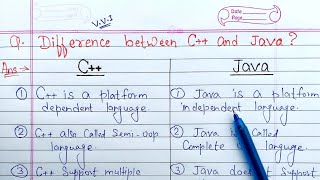 V.V.I
Date
Page
Q. Difference between C++ and Java?
Ans → C++ Java
① C++ is a platform
dependent language.
① Java is a platform
independent language.
② C++ also Called Semi-oop
language
② Java is Called
Complete language
③ C++ Support multiple
③ Java doesn't Support